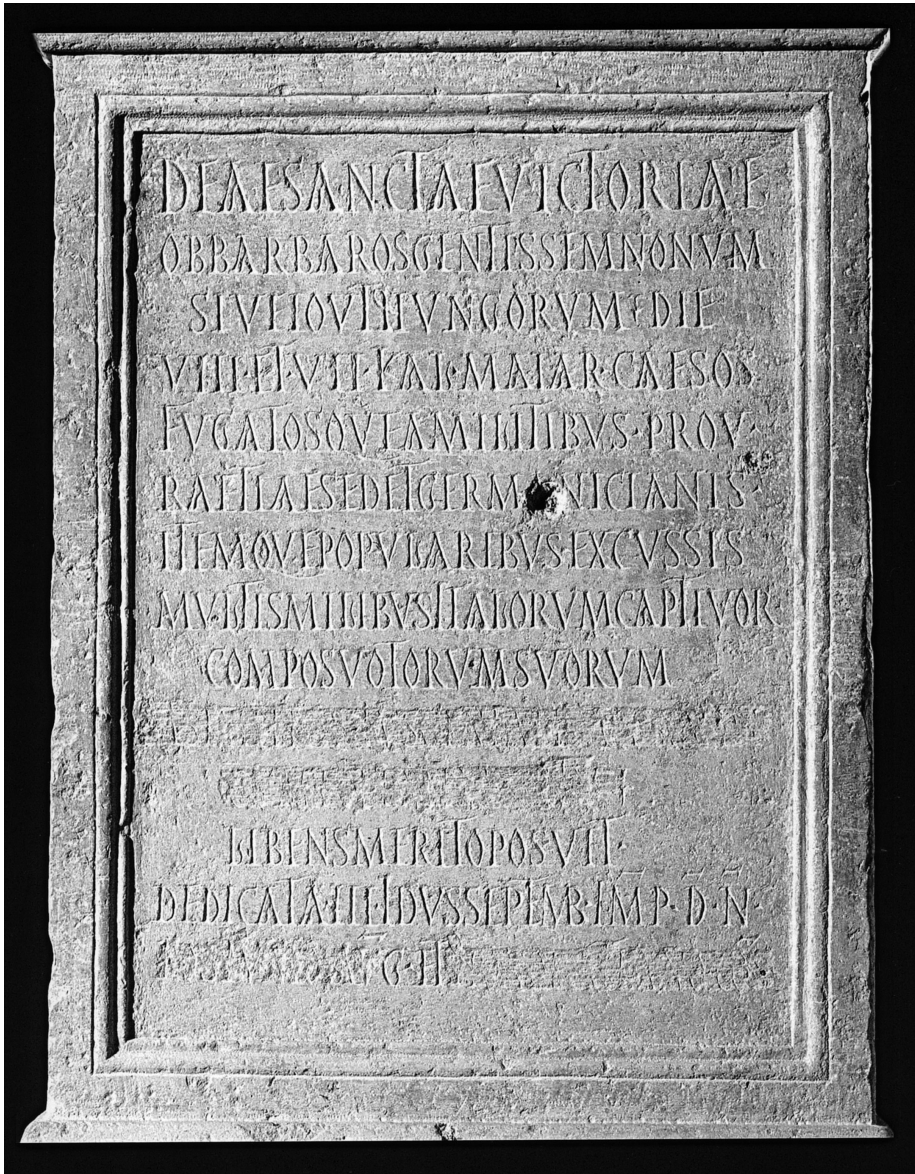 DEAE SANCTAE VICTORIAE
OB BARBAROS GENTIS SEMNONVM
SIVE IOVTHVNGORVM DIE
VIII·ET·VII·KAL·MAIAR·CAESOS
FVGATOSQVE A MILITIBVS·PROV·
RAETIAE SED ET GERMANICIANIS
ITEMQVE POPVLARIBVS EXCVSSIS
MVLTIS MILIBVS ITALORVM CAPTIVOR
COMPOS VOTORVM SVORVM
LIBENS MERITO POSVIT
DEDICATA·III·IDVS SEPTEMB·IMP·D·N·